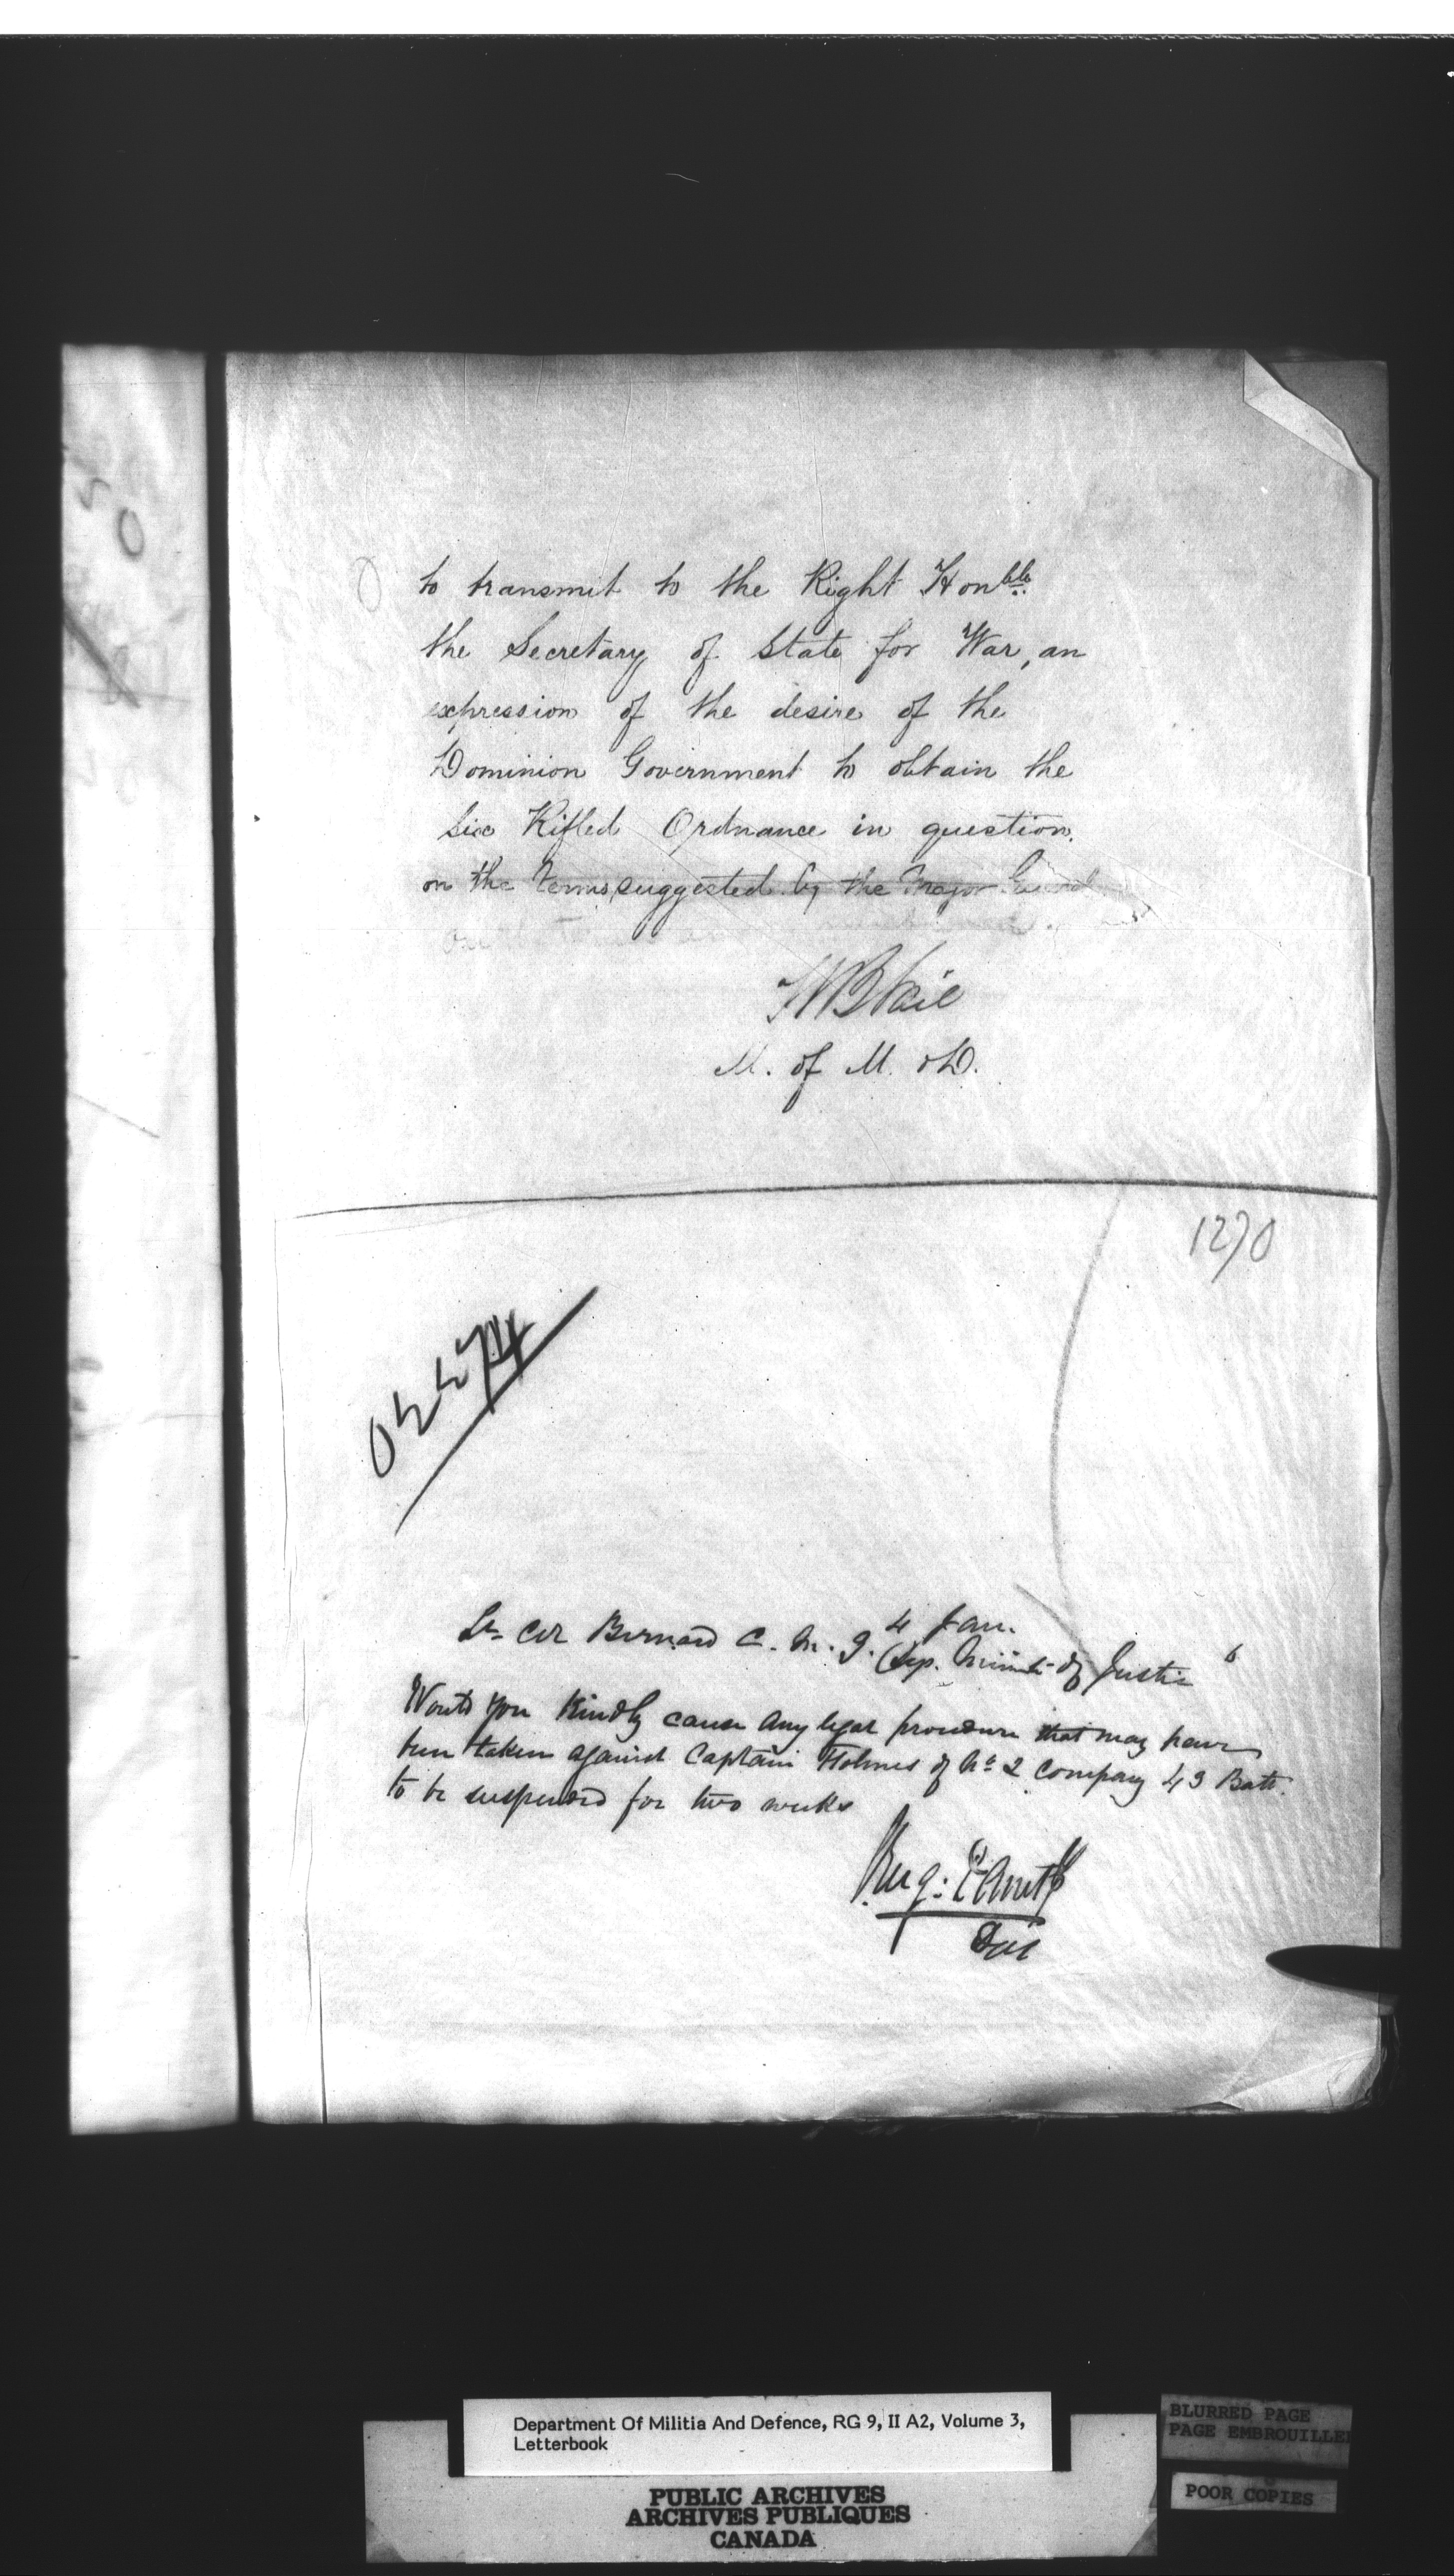 to transmit to the Right Honble.
the Secretary of State for War, an
expression of the desire of the
Dominion Government to obtain the
six Rifled Ordnance in question.
on the terms suggested by the Major General
W B Vail
M. of M. & D.
1270
4 Jan. 6
Lt Col Bernard C. M. G. Dep. Minister of Justice
Would you Kindly cause any legal procedure that may have
been taken against Captain Holmes of No 2 Company 43 Batt.
to be suspended for two weeks
Department Of Militia And Defence, RG 9, II A2, Volume 3,
Letterbook
PUBLIC ARCHIVES
ARCHIVES PUBLIQUES
CANADA
BLURRED PAGE
PAGE EMBROUILLE
POOR COPIES